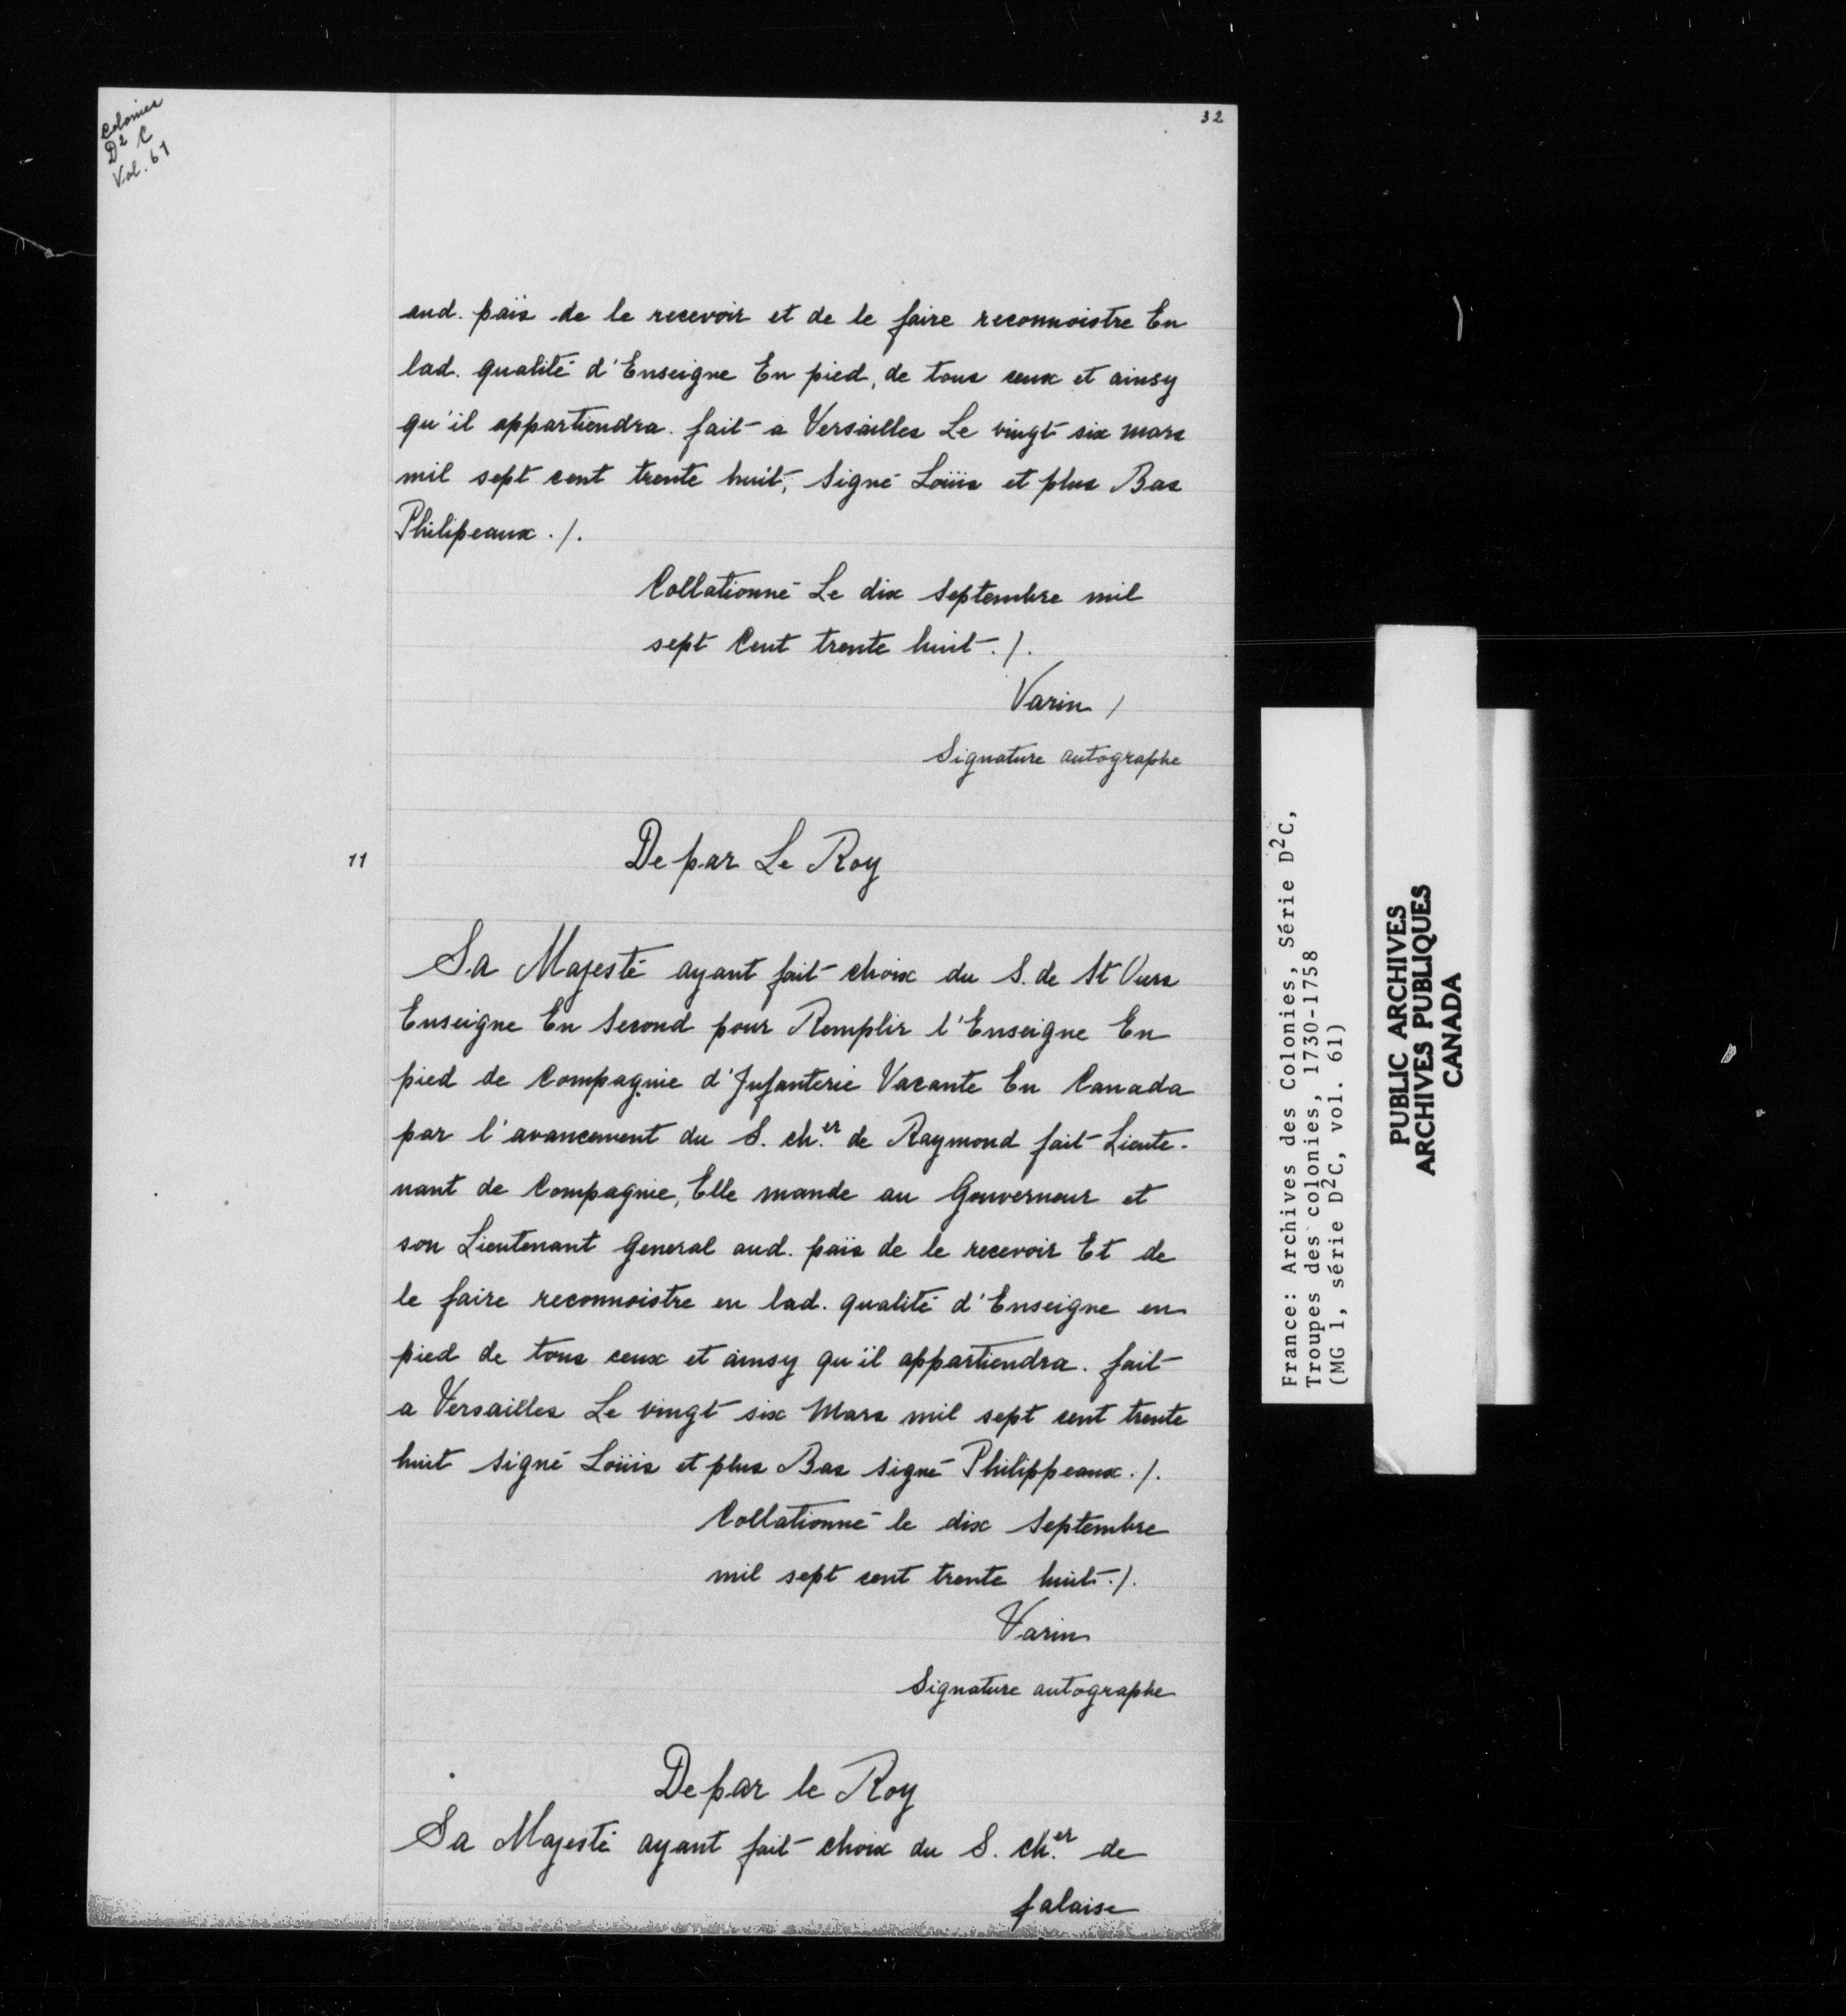 Colonies
D² C
Vol. 61
32
aud. païs de le recevoir et de le faire reconnoistre En
lad. qualité d'Enseigne En pied, de tous ceux et ainsy
qu'il appartiendra. fait a Versailles Le vingt six mars
mil sept cent trente huit, Signé Loüis et plus Bas
Philipeaux ./.
Collationné Le dix Septembre mil
sept Cent trente huit ./.
Varin /
Signature autographe
11
De par Le Roy
Sa Majesté ayant fait choix du S. de St Ours
Enseigne En Second pour Remplir l'Enseigne En
pied de Compagnie d'Infanterie Vacante En Canada
par l'avancement du S. ch.er de Raymond fait Lieute-
nant de Compagnie, Elle mande au Gouverneur et
son Lieutenant General aud. païs de le recevoir Et de
le faire reconnoistre en lad. qualité d'Enseigne en
pied de tous ceux et ainsy qu'il appartiendra. fait
a Versailles Le vingt six Mars mil sept cent trente
huit signé Loüis et plus Bas signé Philippeaux ./.
Collationné le dix Septembre
mil sept cent trente huit ./.
Varin
Signature autographe
De par le Roy
Sa Majesté ayant fait choix du S. ch.er de
falaise
France: Archives des Colonies, Série D²C,
Troupes des colonies, 1730-1758
(MG 1, série D²C, vol. 61)
PUBLIC ARCHIVES
ARCHIVES PUBLIQUES
CANADA